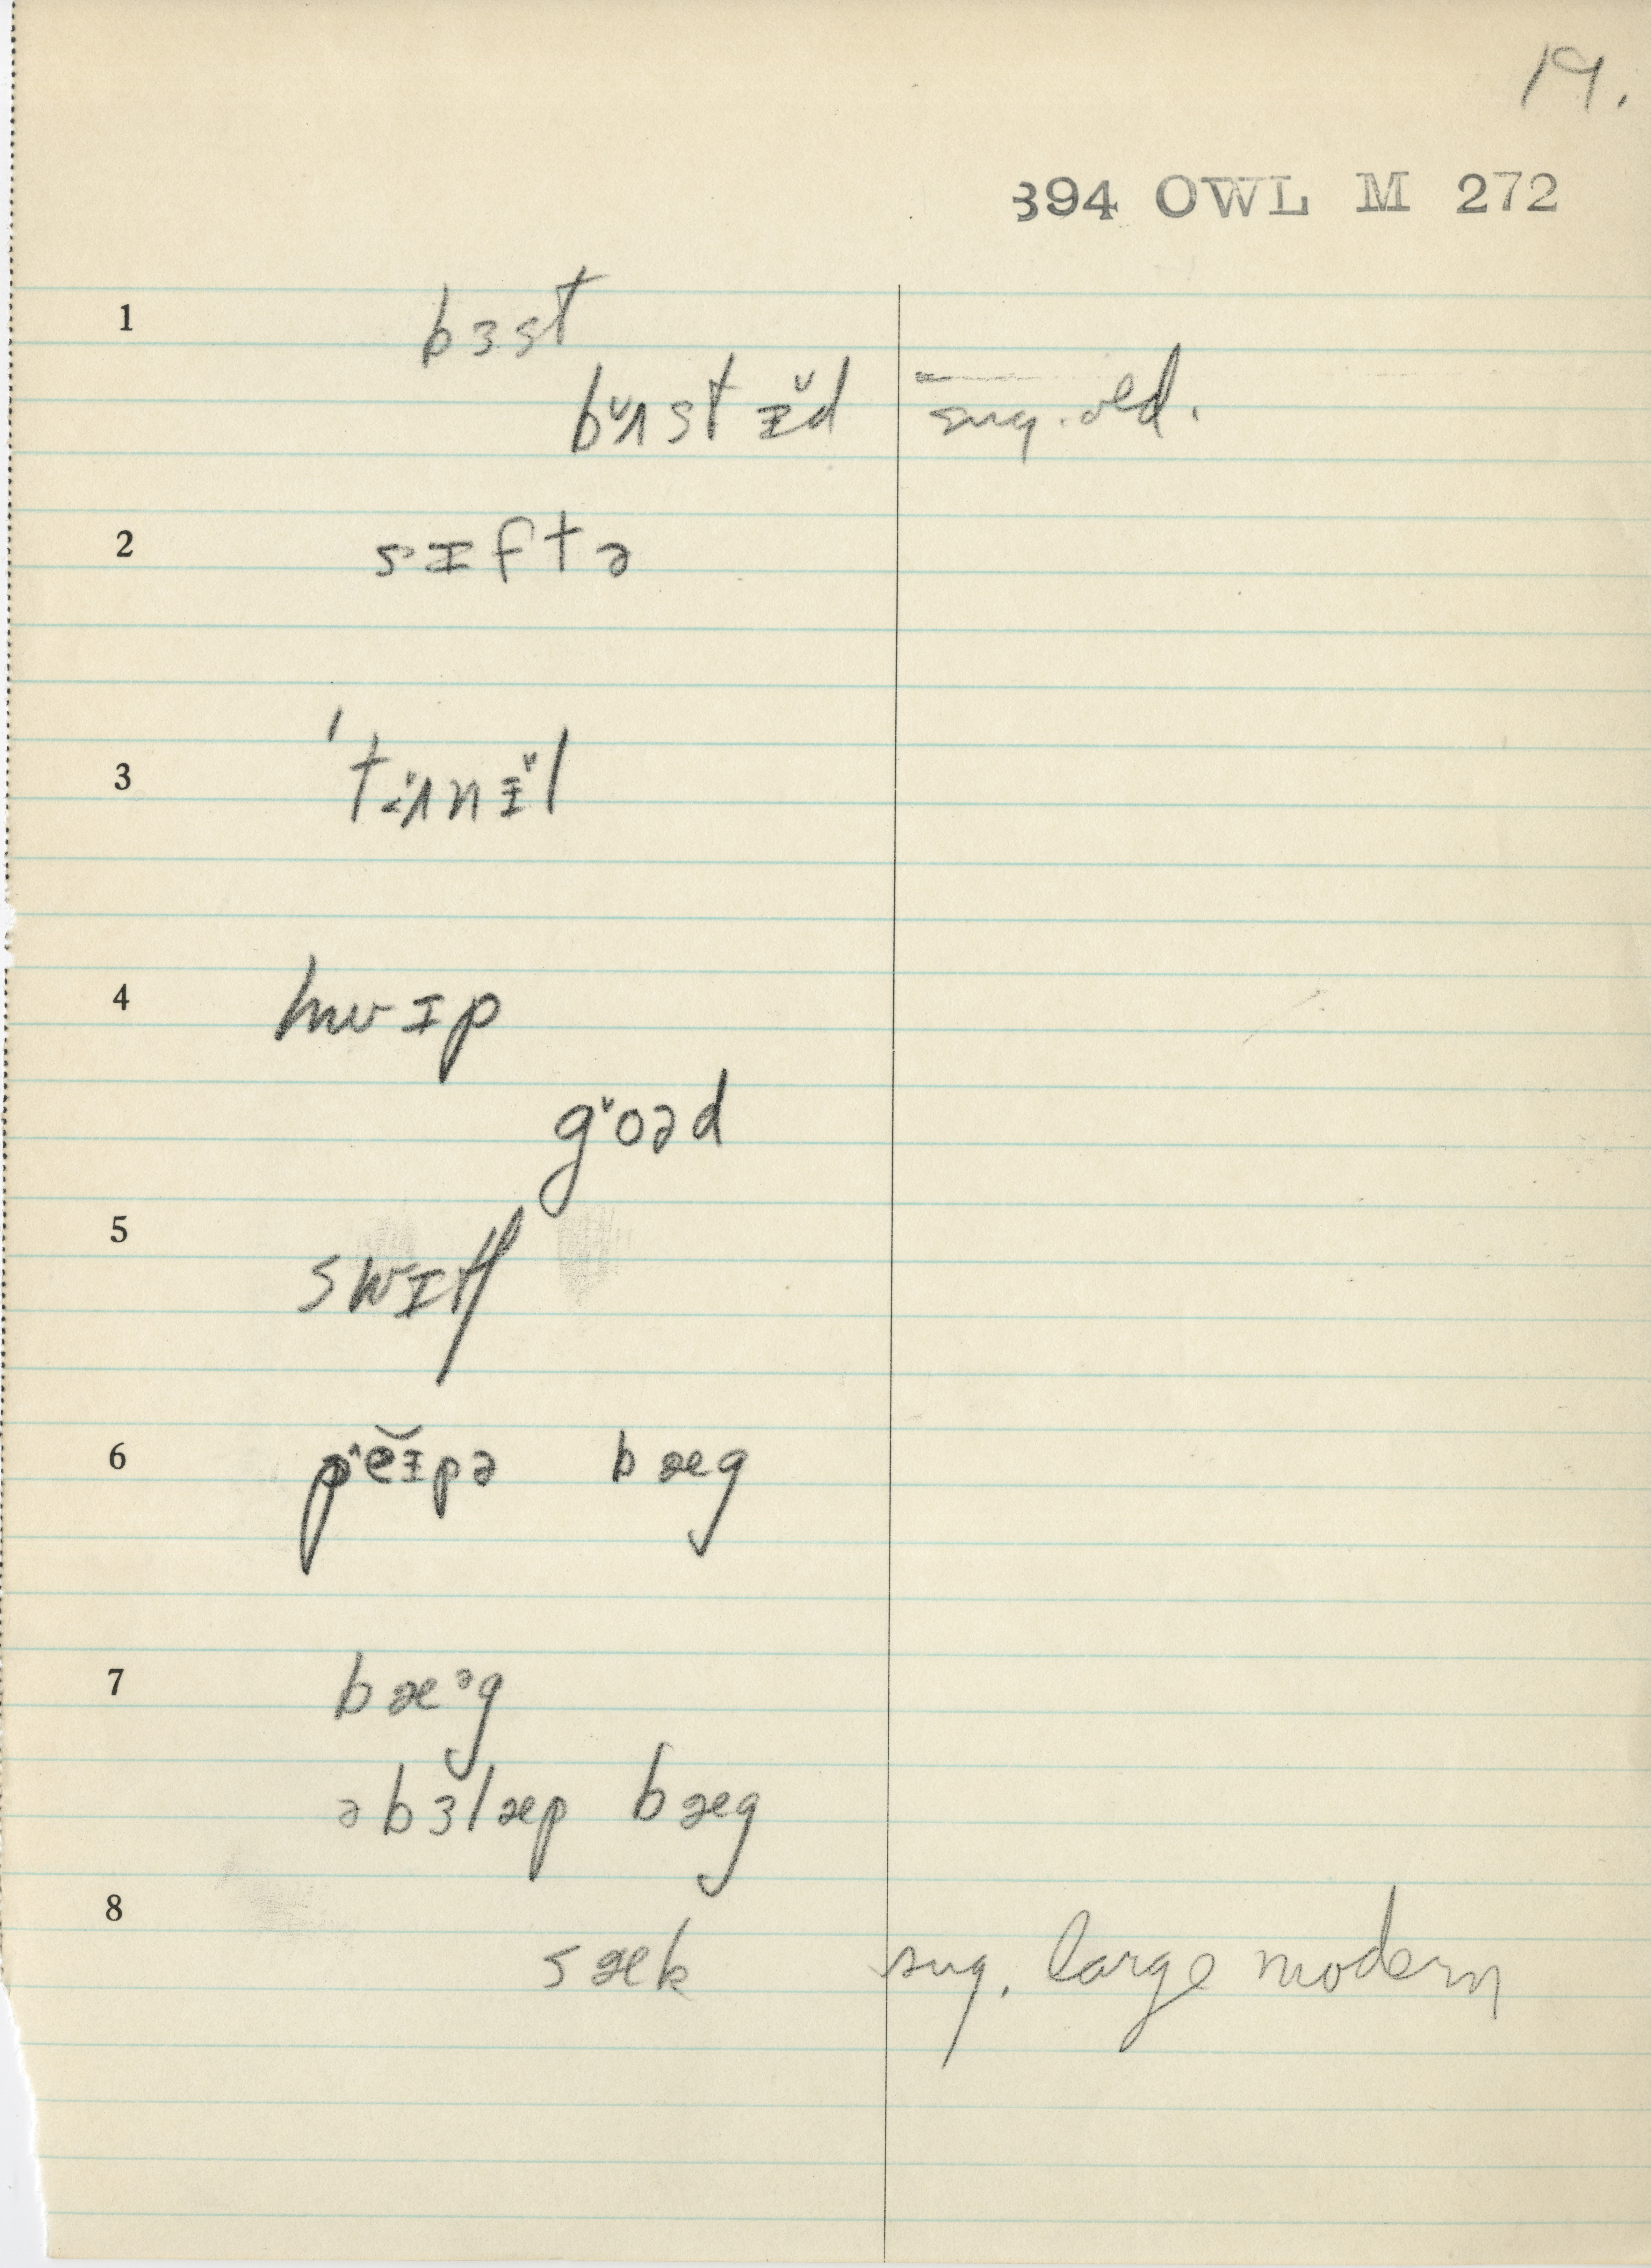 19.
394 OWL M 272
1 bɜst
bʌ̆stɪ̆d sug. old.
2 sɪftə
3 'tʌ̆nɪ̆l
4 hwɪp
goəd
5 swɪtʃ
6 pĕɪpə bæg
7 bæᵊg
əbɜlæp bæg
8 sæk sug. large modern